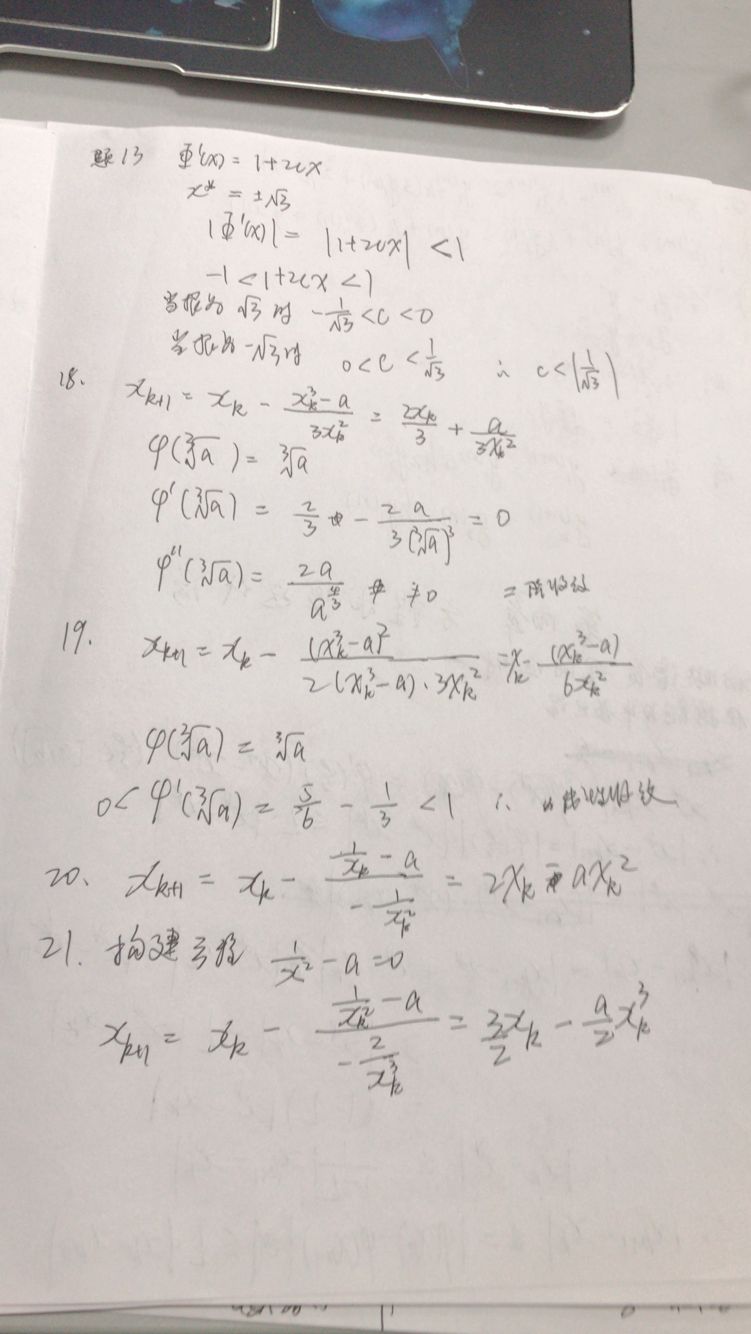 题13 Φ'(x) = 1+2cx
x* = ±√3
|Φ'(x)| = |1+2cx| < 1
-1 < 1+2cx < 1
当根为 √3 时 -1/√3 < c < 0
当根为 -√3 时 0 < c < 1/√3 ∴ c < |1/√3|
18. x_{k+1} = x_k - (x_k^3 - a)/(3x_k^2) = 2x_k/3 + a/(3x_k^2)
φ(∛a) = ∛a
φ'(∛a) = 2/3 - 2a/(3(∛a)^3) = 0
φ''(∛a) = 2a/a^{4/3} ≠ 0 二阶收敛
19. x_{k+1} = x_k - (x_k^3 - a)^2/(2(x_k^3 - a)·3x_k^2) = x_k - (x_k^3 - a)/(6x_k^2)
φ(∛a) = ∛a
0 < φ'(∛a) = 5/6 - 1/3 < 1 ∴ 收敛
20、 x_{k+1} = x_k - (1/x_k - a)/(-1/x_k^2) = 2x_k - ax_k^2
21. 构建方程 1/x^2 - a = 0
x_{k+1} = x_k - (1/x_k^2 - a)/(-2/x_k^3) = 3/2 x_k - a/2 x_k^3